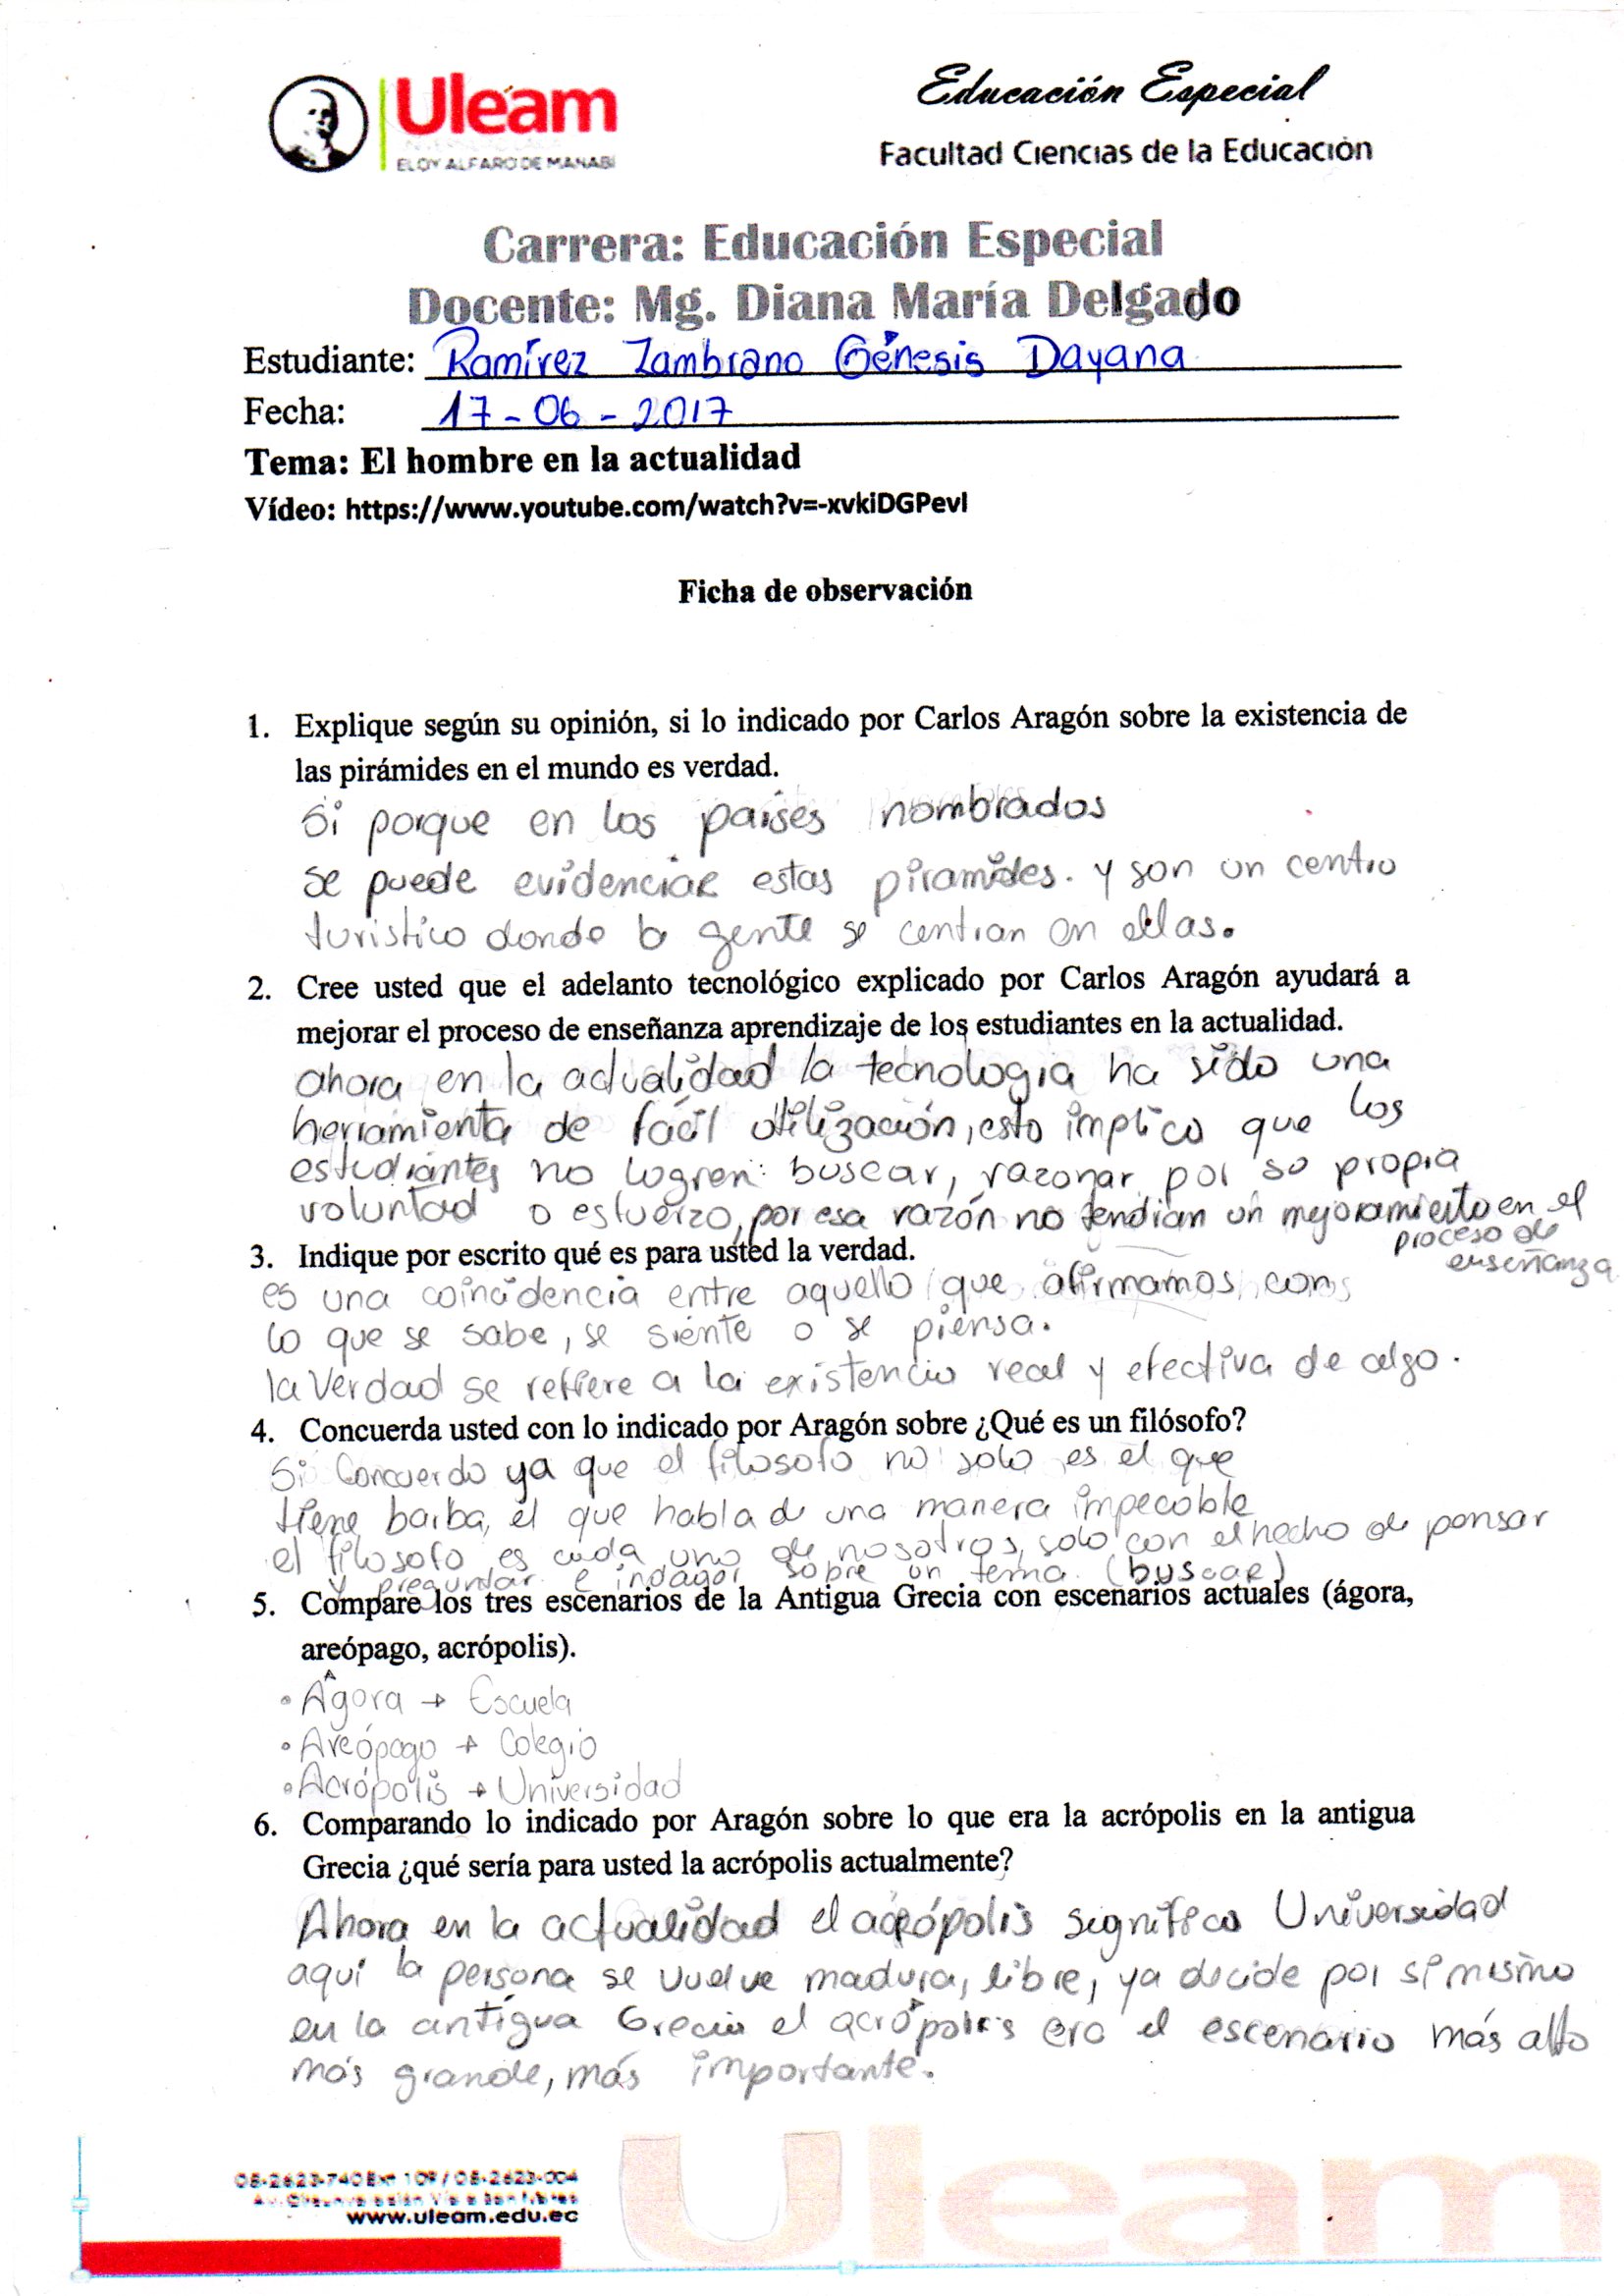 Uleam
ELOY ALFARO DE MANABÍ
Educación Especial
Facultad Ciencias de la Educación
Carrera: Educación Especial
Docente: Mg. Diana María Delgado
Estudiante: Ramírez Zambrano Génesis Dayana
Fecha: 17-06-2017
Tema: El hombre en la actualidad
Vídeo: https://www.youtube.com/watch?v=-xvkiDGPevI
Ficha de observación
1. Explique según su opinión, si lo indicado por Carlos Aragón sobre la existencia de
las pirámides en el mundo es verdad.
Si porque en los países nombrados
se puede evidenciar estas piramides. y son un centro
turistico donde la gente se centran en ellas.
2. Cree usted que el adelanto tecnológico explicado por Carlos Aragón ayudará a
mejorar el proceso de enseñanza aprendizaje de los estudiantes en la actualidad.
ahora en la actualidad la tecnologia ha sido una
herramienta de fácil utilización, esto implica que los
estudiantes no logren buscar, razonar por su propia
voluntad o esfuerzo, por esa razón no tendrian un mejoramiento en el
proceso de
enseñanza
3. Indique por escrito qué es para usted la verdad.
es una coincidencia entre aquello que afirmamos con
lo que se sabe, se siente o se piensa.
la Verdad se refiere a la existencia real y efectiva de algo.
4. Concuerda usted con lo indicado por Aragón sobre ¿Qué es un filósofo?
Si Concuerdo ya que el filosofo no solo es el que
tiene barba, él que habla de una manera impecable
el filosofo es cada uno de nosotros, solo con el hecho de pensar
y preguntar e indagar sobre un tema. (buscar)
5. Compare los tres escenarios de la Antigua Grecia con escenarios actuales (ágora,
areópago, acrópolis).
• Ágora → Escuela
• Areópago → Colegio
• Acrópolis → Universidad
6. Comparando lo indicado por Aragón sobre lo que era la acrópolis en la antigua
Grecia ¿qué sería para usted la acrópolis actualmente?
Ahora en la actualidad el acrópolis significa Universidad
aquí la persona se vuelve madura, libre, ya decide por si mismo
en la antígua Grecia el acrópolis era el escenario más alto
más grande, más importante.
05-2623-740 Ext 109 / 05-2623-004
www.uleam.edu.ec
Uleam